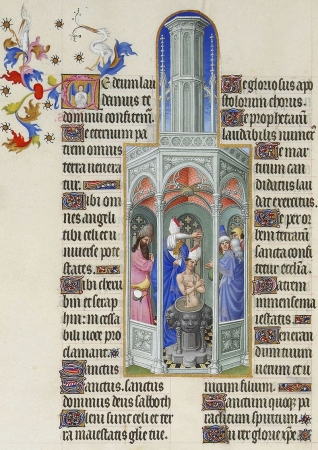 Te deum lau
damus te
dominum confitem̄.
Te eternum pa
trem omnis
terra uenera
tur.
Tibi om
nes angeli
tibi celi et u
niuerse pote
states.
Tibi cheru
bin et seraph
hin: incessa
bili uoce pro
clamant.
Sanctus
Sanctus. sanctus
dominus deus sabaoth
Pleni sunt celi et ter
ra maiestatis glīe tue.
Te gloriosus apo
stolorum chorus.
Te prophetarum
laudabilis numerꝰ
Te mar
tirum can
didatus lau
dat exercitus.
Te per or
bem terrarum
sancta confi
tetur ecclīa.
Patrem
inmense ma
iestatis.
Veneran
dum tuum
uerum et u
nicum filium.
Sanctum quoqꝫ pa
raclitum spiritum.
Tu rex glorie xp̄e.